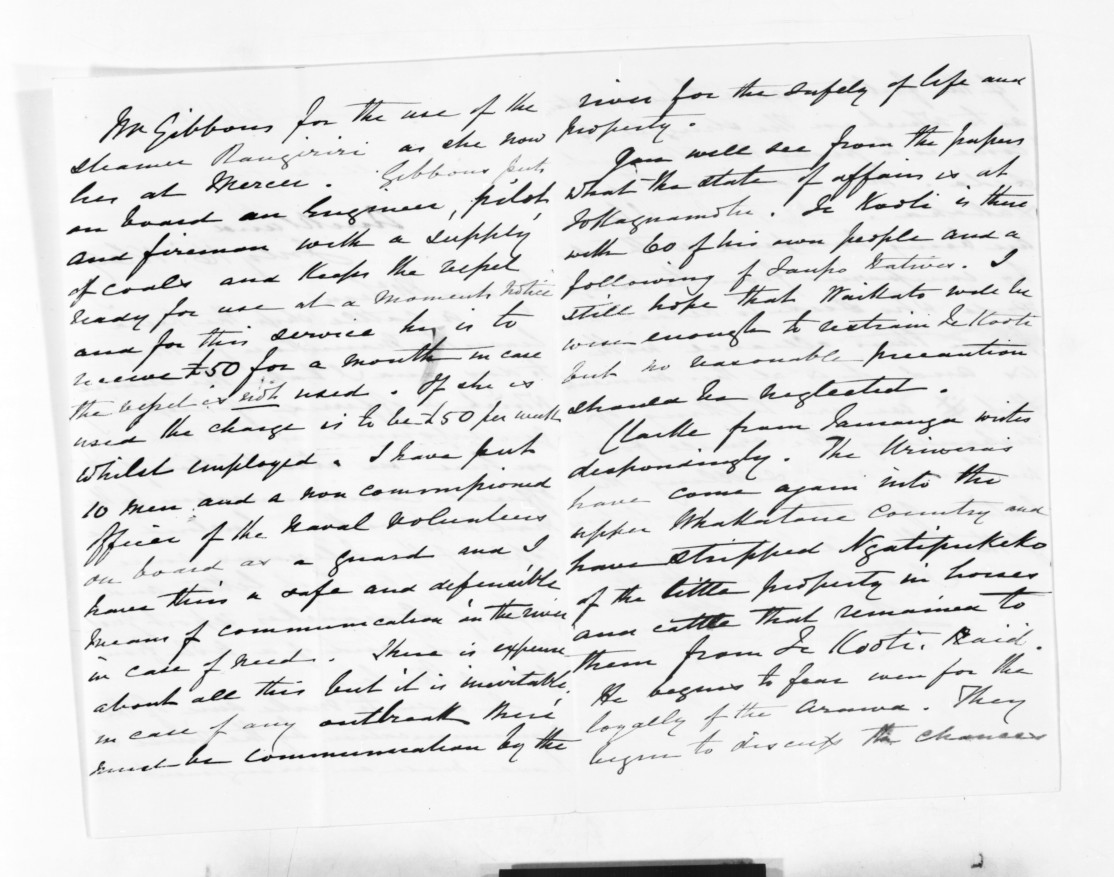 Mr Gibbons for the use of the
steamer Rangiriri as she now
lies at Mercer. Gibbons puts
on board an Engineer, pilot
and fireman with a supply
of coals and keeps the vessel
ready for use at a moments notice
and for this service he is to
receive £50 for a month in case
the vessel is not used. If she is
used the charge is to be £50 per week
whilst employed. I have put
10 men and a non commissioned
officer of the Naval Volunteers
on board as a guard and I
have thus a safe and defensible
means of communication in the river
in case of need. There is expense
about all this but it is inevitable,
in case of any outbreak there
must be communication by the
river for the safety of life and
property.
You will see from the papers
what the state of affairs is at
Tokagnamotu. Te Kooti is there
with 60 of his own people and a
following of Taupo Natives. I
still hope that Waikato will be
wise enough to restrain Te Kooti
but no reasonable precaution
should be neglected.
Clarke from Tauranga writes
despondingly. The Uriweras
have come again into the
upper Whakatane country and
have stripped Ngatipukeko
of the little property in horses
and cattle that remained to
them from Te Kooti's Raid.
He begins to fear even for the
loyalty of the Arawa. They
begin to discuss the chances